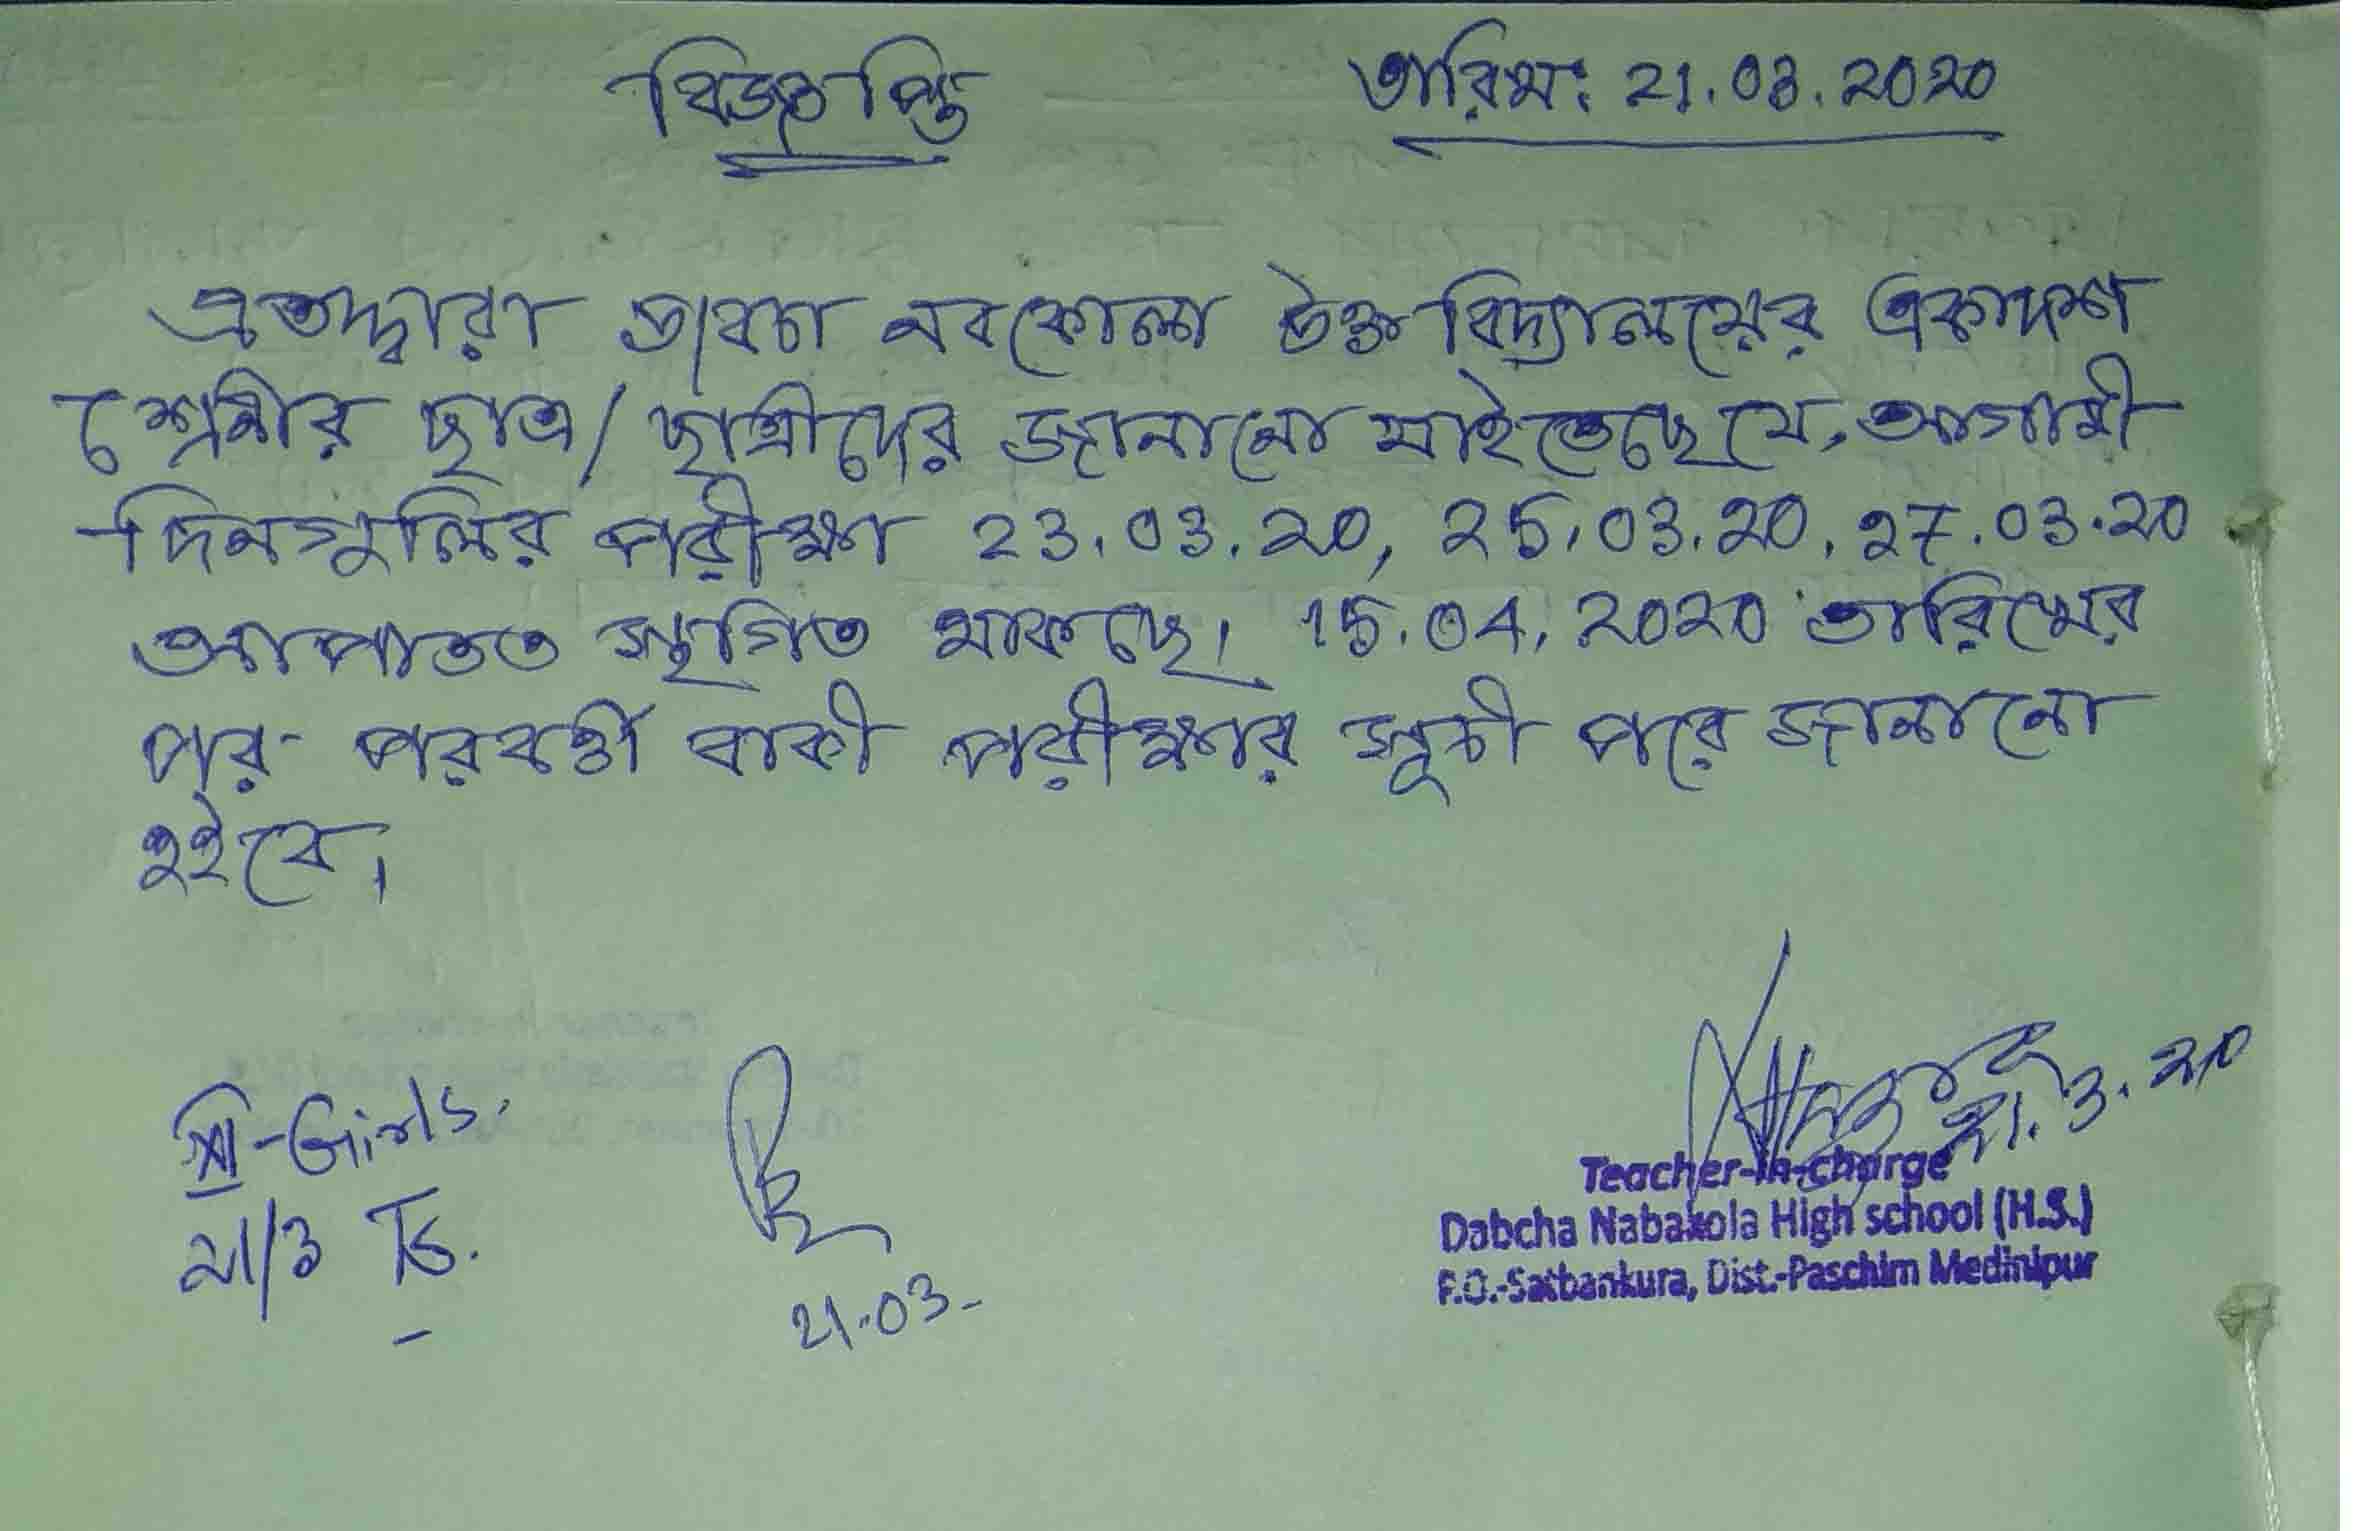 বিজ্ঞপ্তি তারিখ: 21.03.2020
এতদ্দ্বারা ডাবচা নবকোলা উচ্চ বিদ্যালয়ের একাদশ
শ্রেনীর ছাত্র/ছাত্রীদের জানানো যাইতেছে যে, আগামী
দিনগুলির পরীক্ষা 23.03.20, 25.03.20, 27.03.20
আপাতত স্থগিত থাকছে। 15.04.2020 তারিখের
পর পরবর্ত্তী বাকী পরীক্ষার সূচী পরে জানানো
হইবে।
21.3.20
Girls.
21/3
21.03
Teacher-in-charge
Dabcha Nabakola High school (H.S.)
P.O.-Satbankura, Dist.-Paschim Medinipur